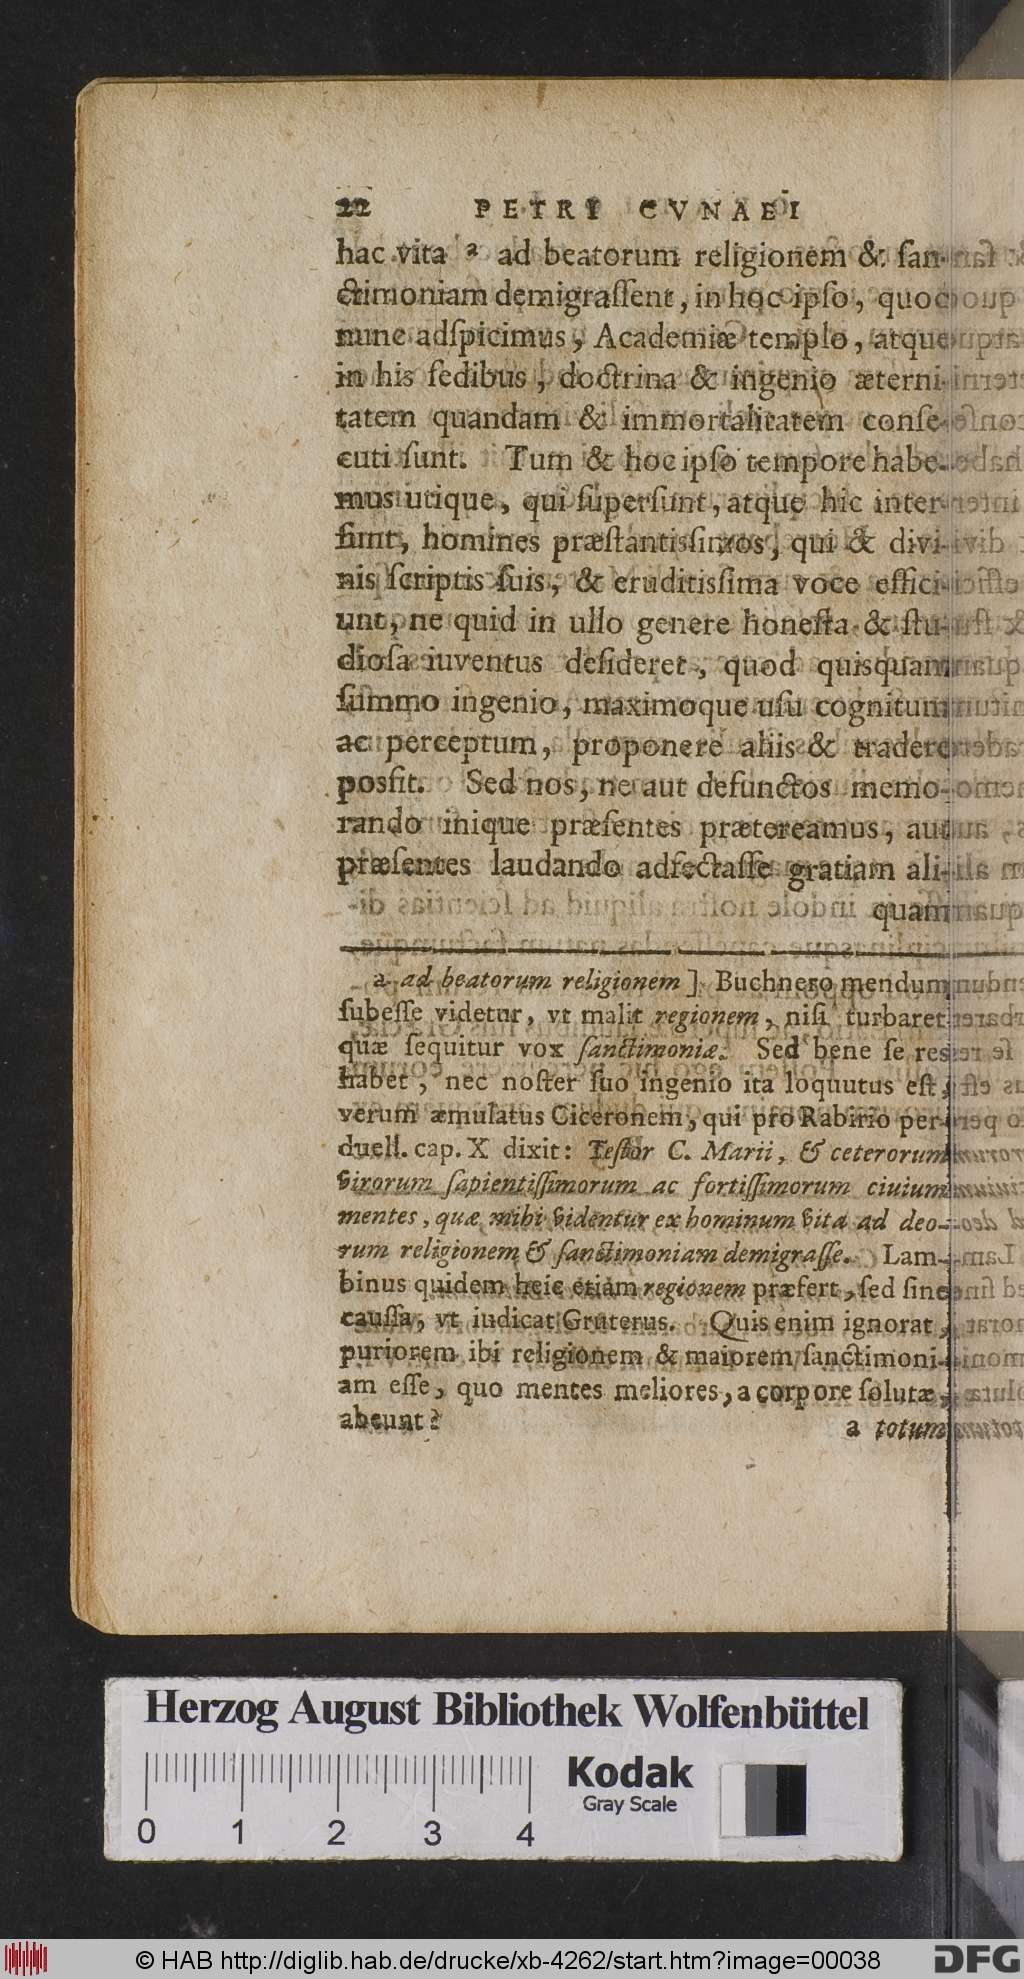 22 PETRI CVNAEI
hac vita ᵃ ad beatorum religionem & ſan-
ctimoniam demigraſſent, in hoc ipſo, quod
nunc adſpicimus, Academiæ templo, atque
in his ſedibus, doctrina & ingenio æterni-
tatem quandam & immortalitatem conſe-
cuti ſunt. Tum & hoc ipſo tempore habe-
mus utique, qui ſuperſunt, atque hic inter-
ſunt, homines præſtantisſimos, qui & divi-
nis ſcriptis ſuis, & eruditisſima voce effici-
unt, ne quid in ullo genere honeſta & ſtu-
dioſa iuventus deſideret, quod quisquam
ſummo ingenio, maximoque uſu cognitum
ac perceptum, proponere aliis & tradere
posſit. Sed nos, ne aut defunctos memo-
rando inique præſentes prætereamus, aut
præſentes laudando adfectaſſe gratiam ali-
quam
a ad beatorum religionem ]. Buchnero mendum
ſubeſſe videtur, vt malit regionem, niſi turbaret
quæ ſequitur vox ſanctimoniæ. Sed bene ſe res
habet, nec noſter ſuo ingenio ita loquutus eſt,
verum æmulatus Ciceronem, qui pro Rabirio per-
duell. cap. X dixit: Teſtor C. Marii, & ceterorum
virorum ſapientiſſimorum ac fortiſſimorum ciuium
mentes, quæ mihi videntur ex hominum vita ad deo-
rum religionem & ſanctimoniam demigraſſe. Lam-
binus quidem heic etiam regionem præfert, ſed ſine
cauſſa, vt iudicat Gruterus. Quis enim ignorat,
puriorem ibi religionem & maiorem ſanctimoni-
am eſſe, quo mentes meliores, a corpore ſolutæ,
abeunt?
a totum
Herzog August Bibliothek Wolfenbüttel
Kodak
Gray Scale
0 1 2 3 4
© HAB http://diglib.hab.de/drucke/xb-4262/start.htm?image=00038
DFG